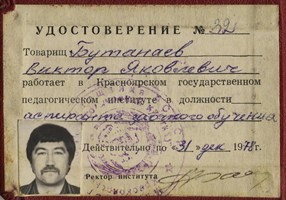 УДОСТОВЕРЕНИЕ № 32
Товарищ Бутанаев
Виктор Яковлевич
работает в Красноярском государственном
педагогическом институте в должности
аспиранта заочного обучения
Действительно по "31" дек 1978г.
Ректор института